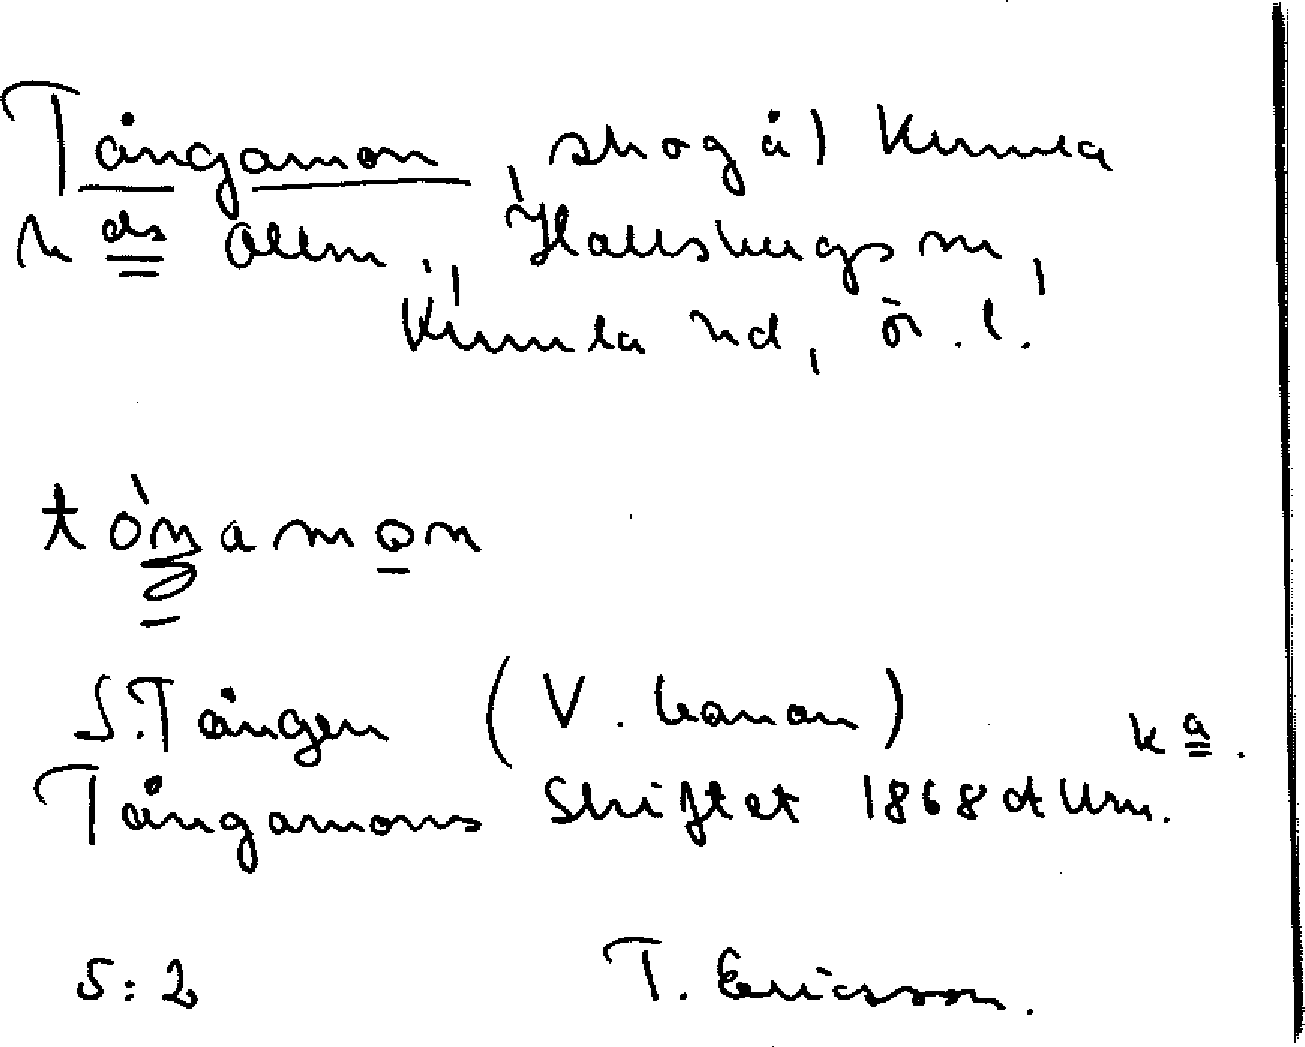 Tångamon, skog å) Kumla
k ds allm., Hallsbergs sn,
Kumla hd, ör. l.
tóŋamon
S. Tången (V. kanan) ka.
Tångamons Skiftet 1868 dk Urn.
5:2 T. Ericsson.